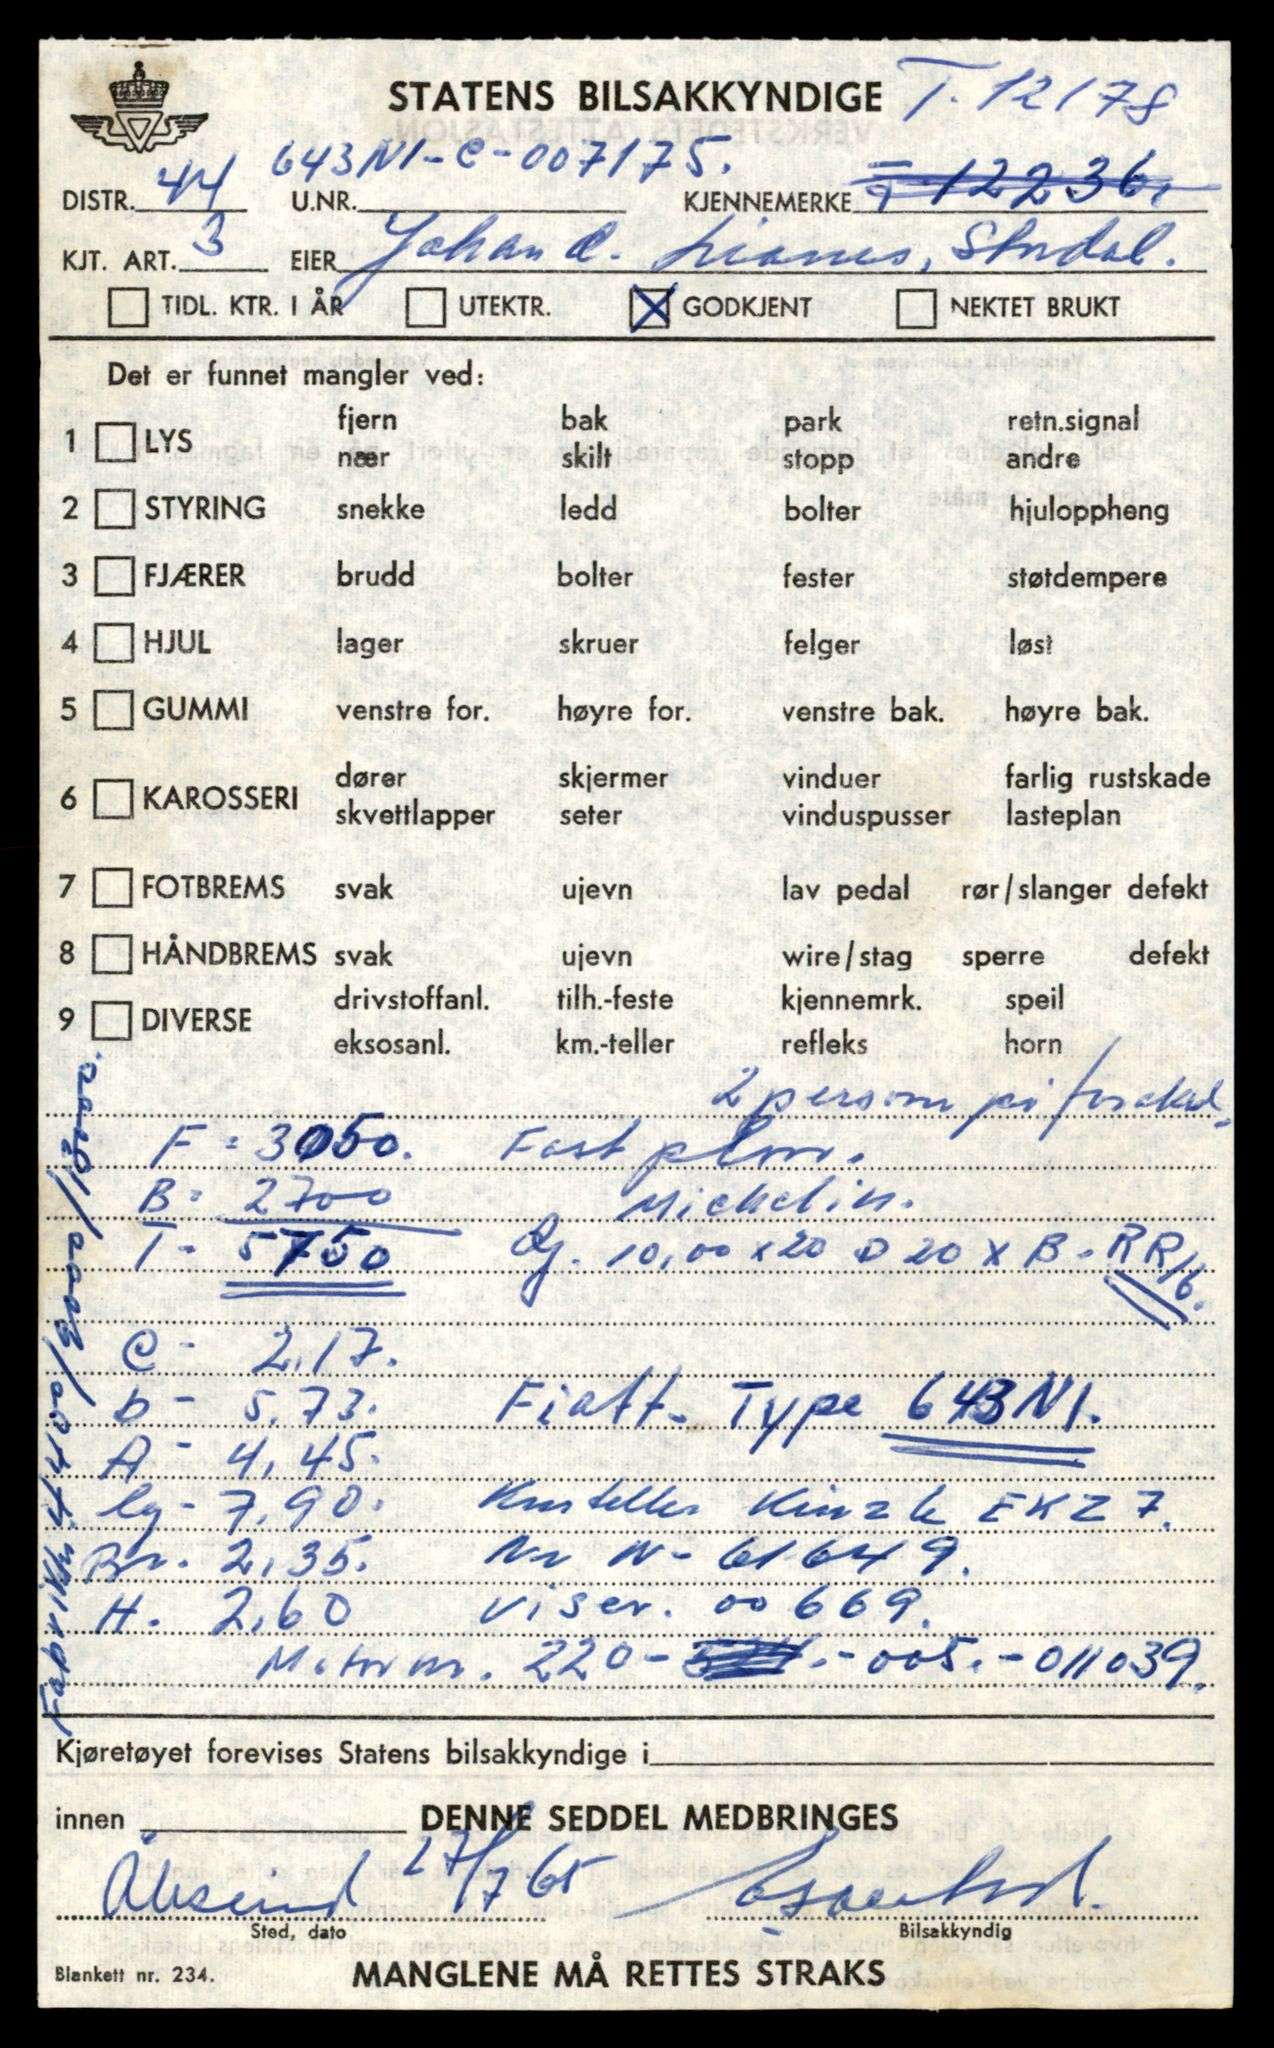 STATENS BILSAKKYNDIGE T. 12178
643N1-C-007175.
DISTR. 44 U.NR. KJENNEMERKE T-12236.
KJT. ART. 3 EIER Johan Stordal.
TIDL. KTR. I ÅR UTEKTR. X GODKJENT NEKTET BRUKT
Det er funnet mangler ved:
fjern bak park retn.signal
1 LYS
nær skilt stopp andre
2 STYRING snekke ledd bolter hjuloppheng
3 FJÆRER brudd bolter fester støtdempere
4 HJUL lager skruer felger løst
5 GUMMI venstre for. høyre for. venstre bak. høyre bak.
dører skjermer vinduer farlig rustskade
6 KAROSSERI
skvettlapper seter vinduspusser lasteplan
7 FOTBREMS svak ujevn lav pedal rør/slanger defekt
8 HÅNDBREMS svak ujevn wire/stag sperre defekt
drivstoffanl. tilh.-feste kjennemrk. speil
9 DIVERSE
eksosanl. km.-teller refleks horn
2 person på
F = 3050. Fast plan.
B = 2700 Michelin.
T - 5750 Dj. 10,00 x 20 D 20 x B - RR16.
C - 2,17.
b - 5,73. Fiatt - Type 643N1.
A - 4,45.
lg - 7,90. Km teller Kinzle EKZ 7.
Br. 2,35. Nr N - 61649.
H. 2,60 viser. 00669.
Motor nr. 220 - - 005. - 011039.
Kjøretøyet forevises Statens bilsakkyndige i
innen DENNE SEDDEL MEDBRINGES
Ålesund 27/7 65
Sted, dato Bilsakkyndig
Blankett nr. 234. MANGLENE MÅ RETTES STRAKS